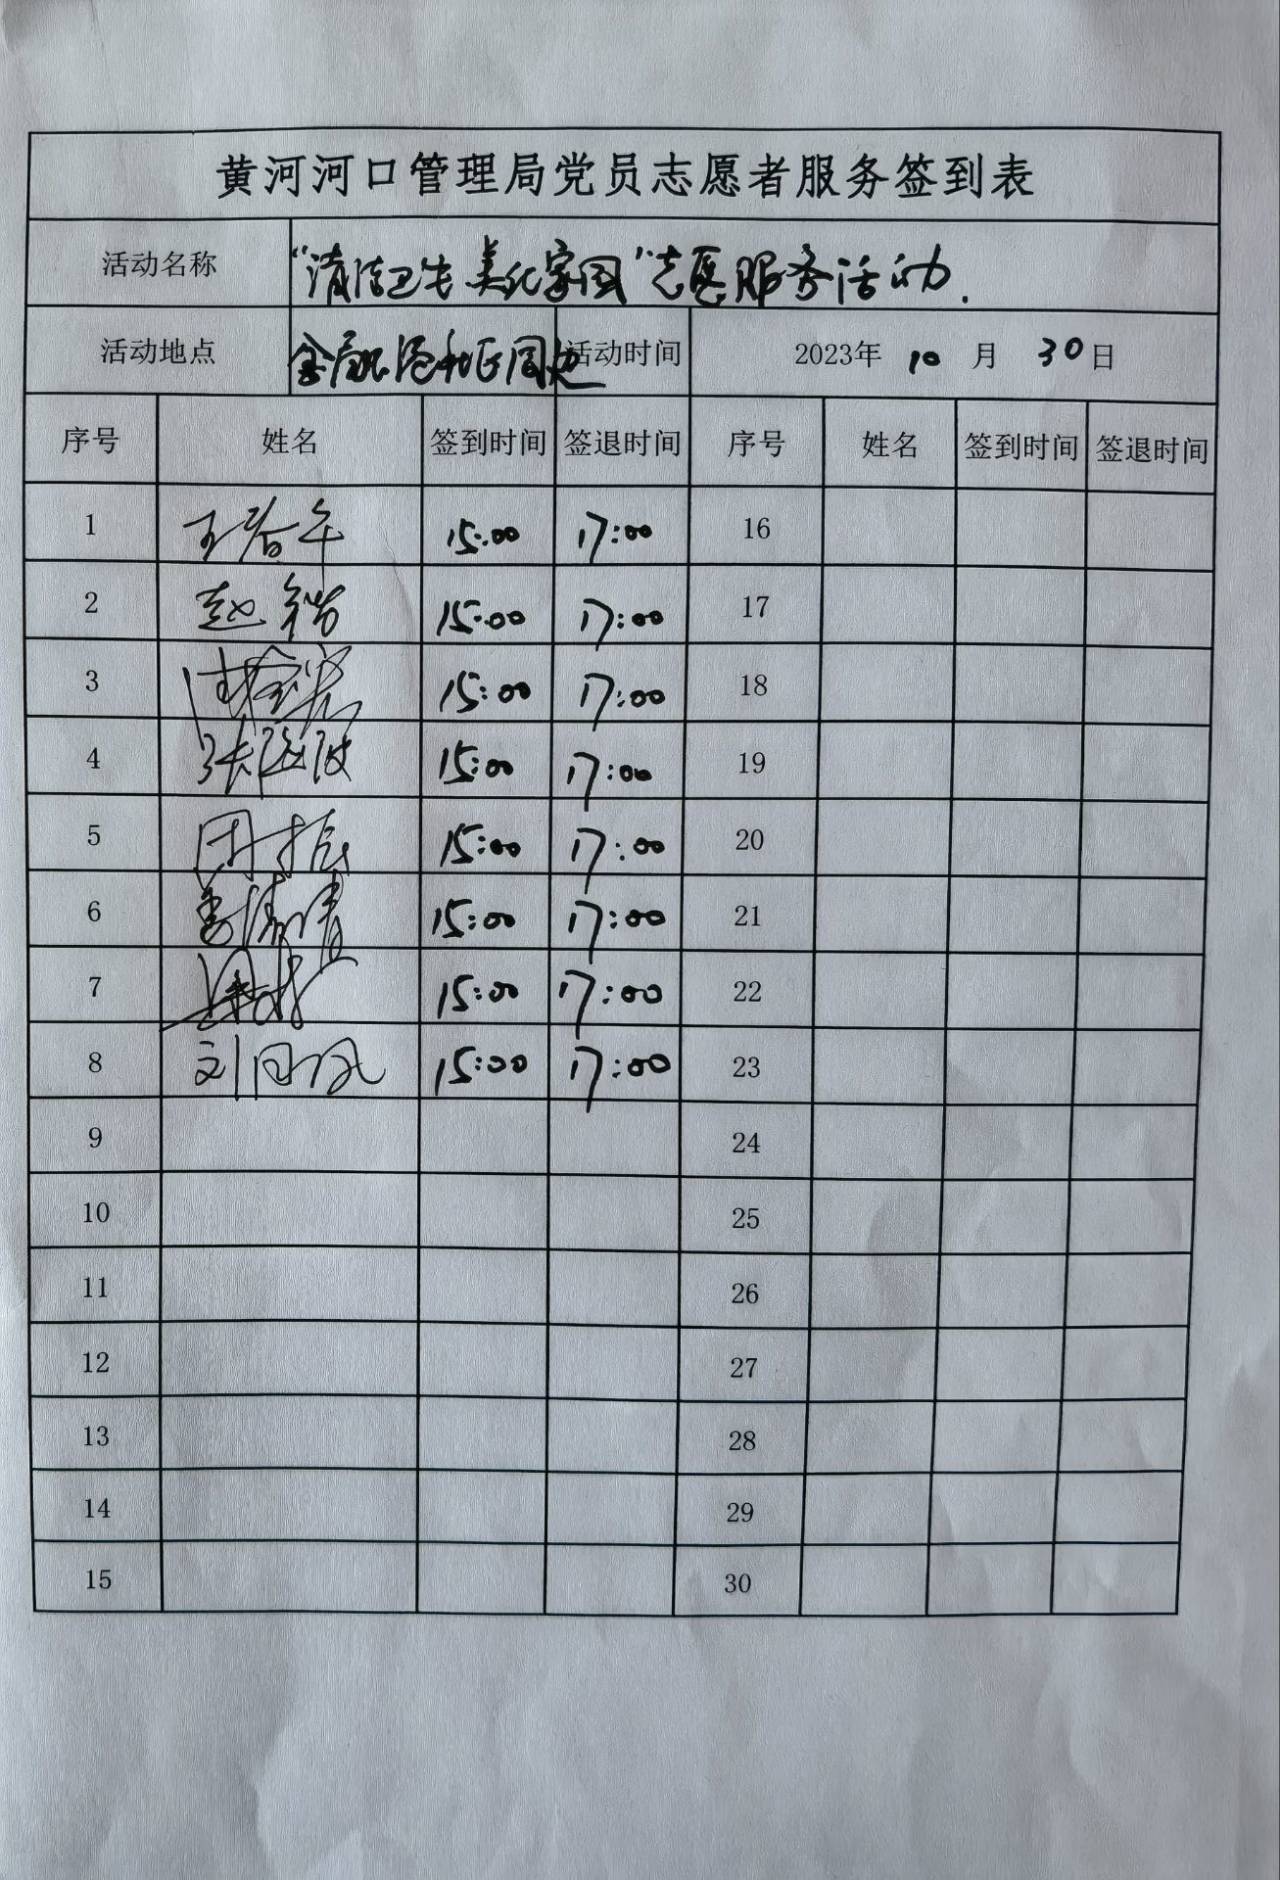 黄河河口管理局党员志愿者服务签到表
活动名称 "清洁卫生 美化家园"志愿服务活动.
活动地点 金融港社区周边 活动时间 2023年 10 月 30 日
序号 姓名 签到时间 签退时间 序号 姓名 签到时间 签退时间
1 15:00 17:00 16
2 赵锴 15:00 17:00 17
3 15:00 17:00 18
4 15:00 17:00 19
5 周振 15:00 17:00 20
6 15:00 17:00 21
7 15:00 17:00 22
8 15:00 17:00 23
9 24
10 25
11 26
12 27
13 28
14 29
15 30